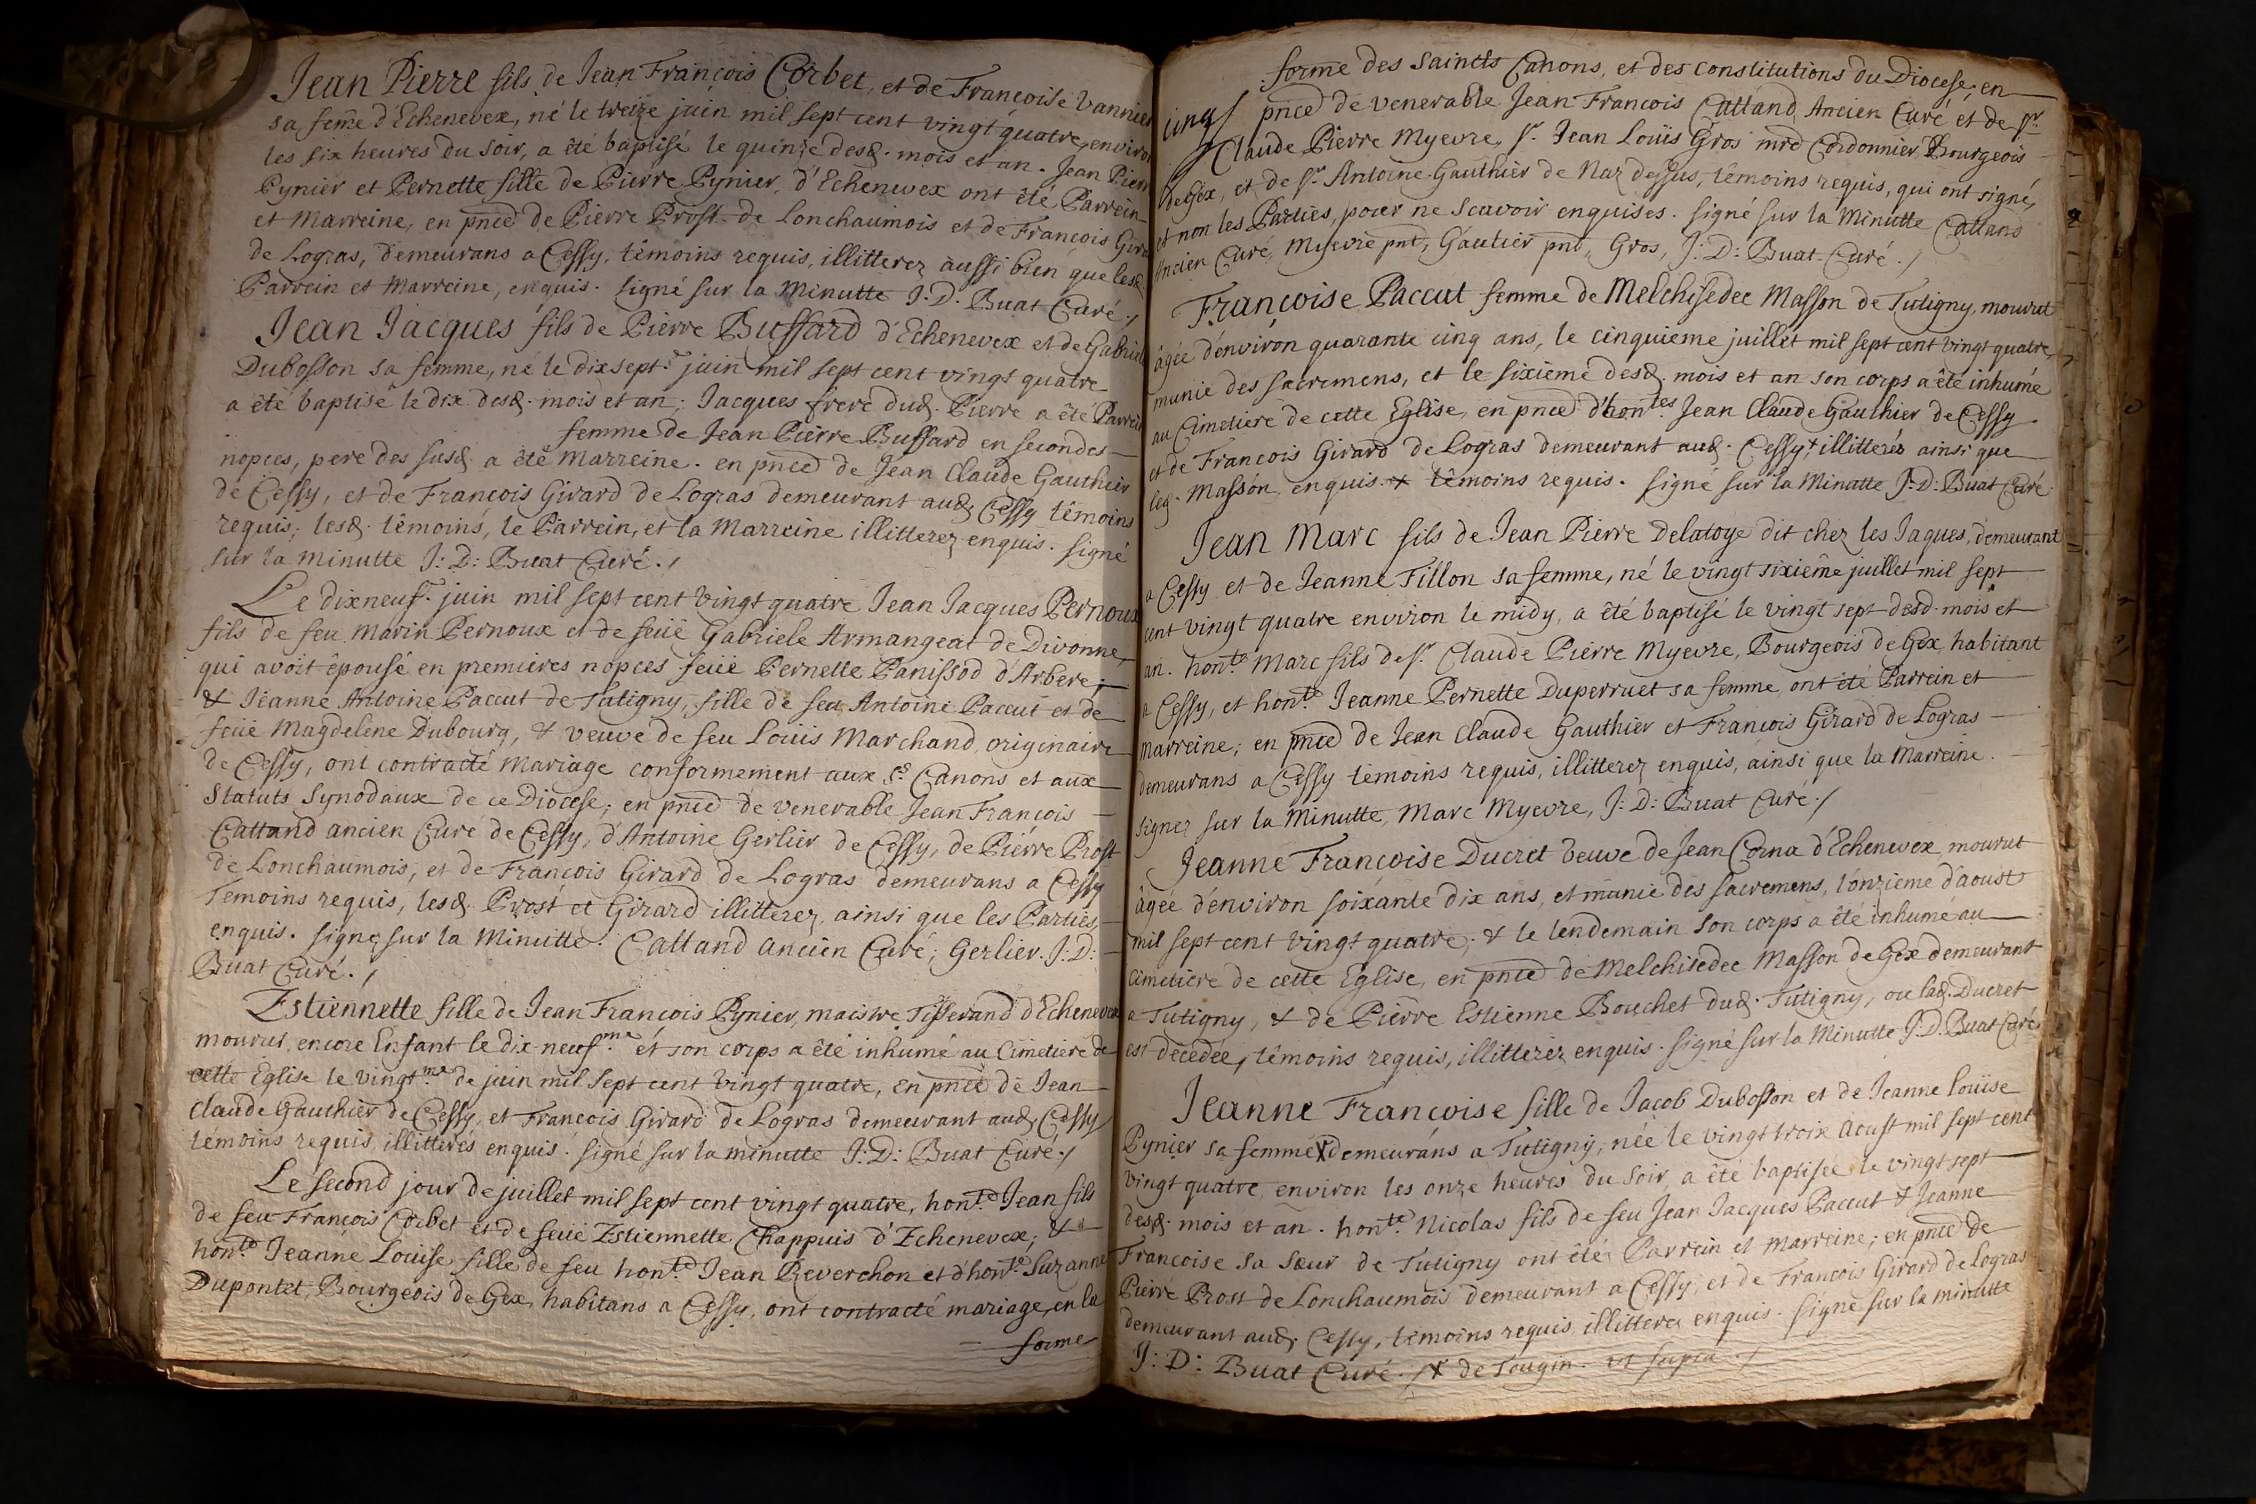 Jean Pierre fils de Jean François Corbet, et de Françoise Vannier
sa feme d'Echenevex, né le treize juin mil sept cent vingt quatre, environ
les six heures du soir, a êté baptisé le quinze desd. mois et an. Jean Pierre
Pynier et Pernette fille de Pierre Pynier, d'Echenevex ont êté Parrein
et Marreine, en pnce de Pierre Prost de Lonchaumois et de François Girard
de Logras, demeurans a Cessy, têmoins requis, illitterez aussi bien que lesd.
Parrein et Marreine, enquis. signé sur la Minutte J. D. Buat Curé ./
Jean Jacques fils de Pierre Bussard d'Echenevex et de Gabriele
Dubosson sa femme, né le dix sept.e juin mil sept cent vingt quatre
a êté baptisé le dix desd. mois et an; Jacques frere dud. Pierre a êté Parrein
femme de Jean Pierre Bussard en secondes
nopces, pere des susd. a êté Marreine. en pnce de Jean Claude Gauthier
de Cessy, et de François Girard de Logras demeurant aud. Cessy têmoins
requis; lesd. têmoins, le Parrein, et la Marreine illitterez enquis. signé
sur la minutte J: D: Buat Curé ./
Le dixneuf.e juin mil sept cent vingt quatre Jean Jacques Pernoux
fils de feu Marin Pernoux et de feüe Gabriele Armangeat de Divonne,
qui avoit êpousé en premieres nopces feüe Pernette Panissod d'Arbere;
& Jeanne Antoine Paccut de Tutigny, fille de feu Antoine Paccut et de
feüe Magdelene Dubourg, & veuve de feu Loüis Marchand, originaire
de Cessy, ont contracté Mariage conformement aux Sts Canons et aux
Statuts Synodaux de ce Diocese; en pnce de venerable Jean François
Cattand ancien Curé de Cessy, d'Antoine Gerlier de Cessy, de Pierre Prost
de Lonchaumois, et de François Girard de Logras demeurans a Cessy
Têmoins requis, lesd. Prost et Girard illitterez, ainsi que les Parties,
enquis. signé sur la Minutte. Cattand ancien Curé; Gerlier. J: D:
Buat Curé. /
Estiennette fille de Jean François Pynier, maistre Tisserand d'Echenevex
mourut encore Enfant le dix neuf.me et son corps a êté inhumé au Cimetiere de
cette Eglise le vingt.me de juin mil sept cent vingt quatre, en pnce de Jean
Claude Gauthier de Cessy, et François Girard de Logras demeurant aud. Cessy
têmoins requis, illitterés enquis. signé sur la minutte J: D: Buat Curé. /
Le second jour de juillet mil sept cent vingt quatre, hon.te Jean fils
de feu François Corbet et de feüe Estiennette Chappuis d'Echenevex; &
hon.te Jeanne Louise, fille de feu hon.te Jean Reverchon et d'hon.te Suzanne
Dupontet, Bourgeois de Gex, habitans a Cessy, ont contracté mariage, en la
forme
forme des Saincts Canons, et des constitutions du Diocese; en
cinq pnce de venerable Jean François Cattand, Ancien Curé et de Sr.
Claude Pierre Myevre, Sr. Jean Loüis Gros mrd Cordonnier Bourgeois
de Gex, et de Sr. Antoine Gauthier de Naz dessus, têmoins requis, qui ont signé,
et non les Parties, pour ne scavoir enquises. signé sur la Minutte Cattand
Ancien Curé, Myevre pnt, Gautier pnt, Gros, J: D: Buat Curé. /
Françoise Paccut femme de Melchisedec Masson de Tutigny, mourut
âgée d'environ quarante cinq ans, le cinquieme juillet mil sept cent vingt quatre,
munie des sacremens, et le sixieme desd. mois et an son corps a êté inhumé
au Cimetiere de cette Eglise, en pnce d'hon.tes Jean Claude Gauthier de Cessy
et de François Girard de Logras demeurant aud. Cessy + illitterés ainsi que
led. Masson, enquis. + têmoins requis. signé sur la Minutte J: D: Buat Curé.
Jean Marc fils de Jean Pierre Delatoye dit chez les Jaques, demeurant
a Cessy et de Jeanne Tillon sa femme, né le vingt sixiême juillet mil sept
cent vingt quatre environ le midy, a êté baptisé le vingt sept desd. mois et
an. hon.te Marc fils de Sr. Claude Pierre Myevre, Bourgeois de Gex, habitant
a Cessy, et hon.te Jeanne Pernette Duperruet sa femme, ont êté Parrein et
Marreine; en pnce de Jean Claude Gauthier et François Girard de Logras
demeurans a Cessy têmoins requis, illitterez enquis, ainsi que la Marreine.
signez sur la Minutte, Marc Myevre, J: D: Buat Curé. /
Jeanne Françoise Ducret veuve de Jean Corna d'Echenevex mourut
âgée d'environ soixante dix ans, et munie des sacremens, l'onzieme d'aoust
mil sept cent vingt quatre; & le lendemain son corps a êté inhumé au
Cimetiere de cette Eglise, en pnce de Melchisedec Masson de Gex demeurant
a Tutigny, & de Pierre Estienne Bouchet dud. Tutigny, ou lad. Ducret
est decedée, têmoins requis, illitterez enquis. signé sur la Minutte J: D: Buat Curé.
Jeanne Françoise fille de Jacob Dubosson et de Jeanne Loüise
Pynier sa femme X demeurans a Tutigny, née le vingt trois Aoust mil sept cent
vingt quatre, environ les onze heures du soir, a êté baptisée le vingt sept
desd. mois et an. hon.te Nicolas fils de feu Jean Jacques Paccut & Jeanne
Françoise sa sœur de Tutigny ont êté Parrein et Marreine; en pnce de
Pierre Prost de Lonchaumois demeurant a Cessy, et de François Girard de Logras
demeurant aud. Cessy, têmoins requis illitterez enquis. signé sur la minutte
J: D: Buat Curé. / X de Tougin. ut supra. /